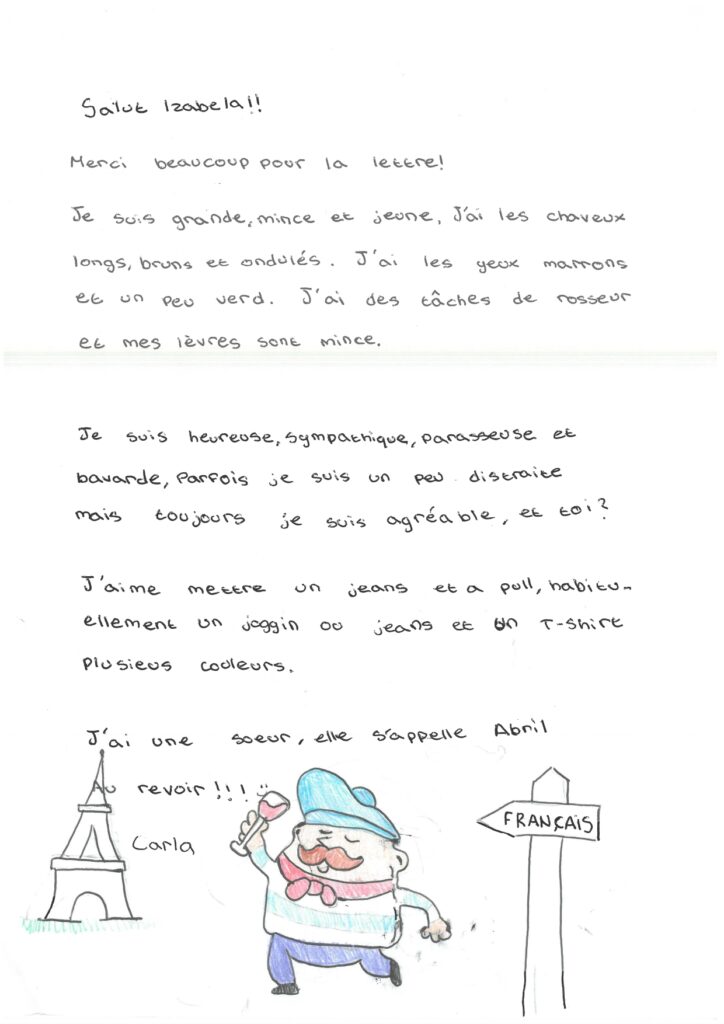 Salut Izabela!!
Merci beaucoup pour la lettre!
Je suis grande, mince et jeune, J'ai les chaveux
longs, bruns et ondulés. J'ai les yeux marrons
et un peu verd. J'ai des tâches de rosseur
et mes lèvres sont mince.
Je suis heureuse, sympathique, parasseuse et
bavarde, Parfois je suis un peu distraite
mais toujours je suis agréable, et toi?
J'aime mettre un jeans et a pull, habitu-
ellement un joggin ou jeans et un T-shirt
plusieus couleurs.
J'ai une soeur, elle s'appelle Abril
Au revoir!!!
Carla
FRANÇAIS